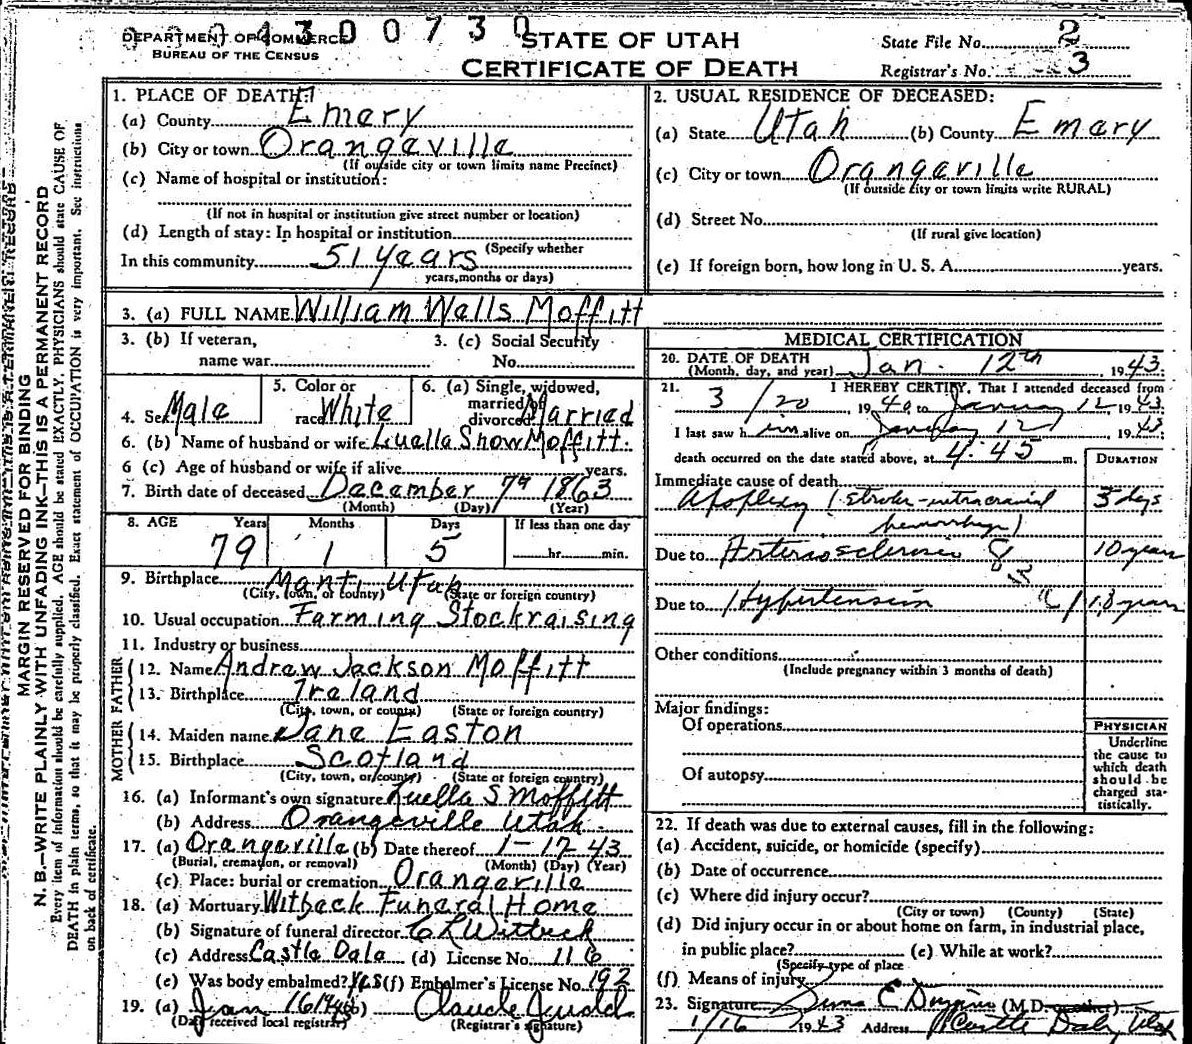 04300730
DEPARTMENT OF COMMERCE
BUREAU OF THE CENSUS
STATE OF UTAH
CERTIFICATE OF DEATH
State File No. 2
Registrar's No. 3
MARGIN RESERVED FOR BINDING
N. B.—WRITE PLAINLY WITH UNFADING INK—THIS IS A PERMANENT RECORD
Every item of information should be carefully supplied. AGE should be stated EXACTLY. PHYSICIANS should state CAUSE OF
DEATH in plain terms, so that it may be properly classified. Exact statement of OCCUPATION is very important. See instructions
on back of certificate.
1. PLACE OF DEATH:
(a) County Emery
(b) City or town Orangeville
(If outside city or town limits name Precinct)
(c) Name of hospital or institution:
(If not in hospital or institution give street number or location)
(d) Length of stay: In hospital or institution
(Specify whether
In this community 51 years
years, months or days)
2. USUAL RESIDENCE OF DECEASED:
(a) State Utah (b) County Emery
(c) City or town Orangeville
(If outside city or town limits write RURAL)
(d) Street No.
(If rural give location)
(e) If foreign born, how long in U. S. A. years.
3. (a) FULL NAME William Walls Moffitt
3. (b) If veteran,
name war
3. (c) Social Security
No.
4. Sex Male
5. Color or
race White
6. (a) Single, widowed,
married or
divorced Married
6. (b) Name of husband or wife Luella Snow Moffitt.
6 (c) Age of husband or wife if alive years.
7. Birth date of deceased December 7th 1863
(Month) (Day) (Year)
8. AGE Years Months Days If less than one day
79 1 5 hr. min.
9. Birthplace Manti Utah
(City, town, or county) (State or foreign country)
10. Usual occupation Farming Stockraising
11. Industry or business
FATHER
12. Name Andrew Jackson Moffitt
13. Birthplace Ireland
(City, town, or county) (State or foreign country)
MOTHER
14. Maiden name Jane Easton
15. Birthplace Scotland
(City, town, or county) (State or foreign country)
16. (a) Informant's own signature Luella S Moffitt
(b) Address Orangeville Utah.
17. (a) Orangeville (b) Date thereof 1-17 43
(Burial, cremation, or removal) (Month) (Day) (Year)
(c) Place: burial or cremation Orangeville
18. (a) Mortuary Witbeck Funeral Home
(b) Signature of funeral director C L Witbeck
(c) Address Castle Dale (d) License No. 116
(e) Was body embalmed? Yes (f) Embalmer's License No. 192
19. (a) Jan 16 1943 (b) Claude
(Date received local registrar) (Registrar's signature)
MEDICAL CERTIFICATION
20. DATE OF DEATH
(Month, day, and year) Jan. 12th, 1943.
21. I HEREBY CERTIFY, That I attended deceased from
3/20, 1940 to January 12 1943
I last saw him alive on January 12, 1943
death occurred on the date stated above, at 4:45 m.
DURATION
Immediate cause of death
Apoplexy (stroke-intracranial 3 days
hemorrhage)
Due to Arteriosclerosis 10 years
Due to Hypertension 10 years
Other conditions
(Include pregnancy within 3 months of death)
Major findings:
Of operations
Of autopsy
PHYSICIAN
Underline
the cause to
which death
should be
charged sta-
tistically.
22. If death was due to external causes, fill in the following:
(a) Accident, suicide, or homicide (specify)
(b) Date of occurrence
(c) Where did injury occur?
(City or town) (County) (State)
(d) Did injury occur in or about home on farm, in industrial place,
in public place? (e) While at work?
(Specify type of place
(f) Means of injury
23. Signature (M.D. or other)
1/16 1943 Address Castle Dale, Utah